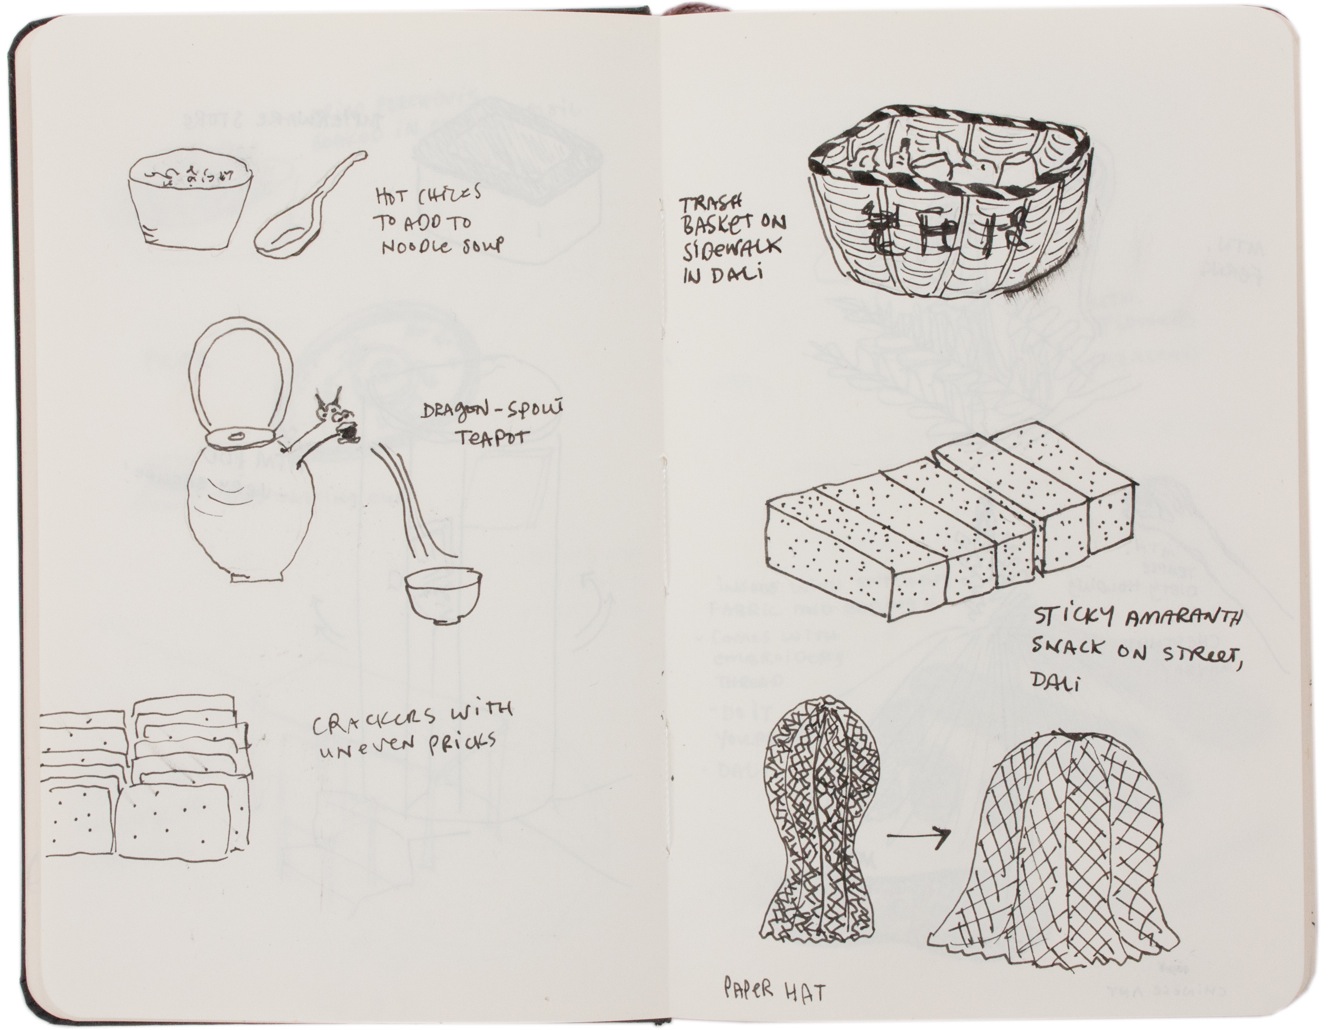 HOT CHILES
TO ADD TO
NOODLE SOUP
DRAGON-SPOUT
TEAPOT
CRACKERS WITH
UNEVEN PRICKS
TRASH
BASKET ON
SIDEWALK
IN DALI
STICKY AMARANTH
SNACK ON STREET,
DALI
PAPER HAT